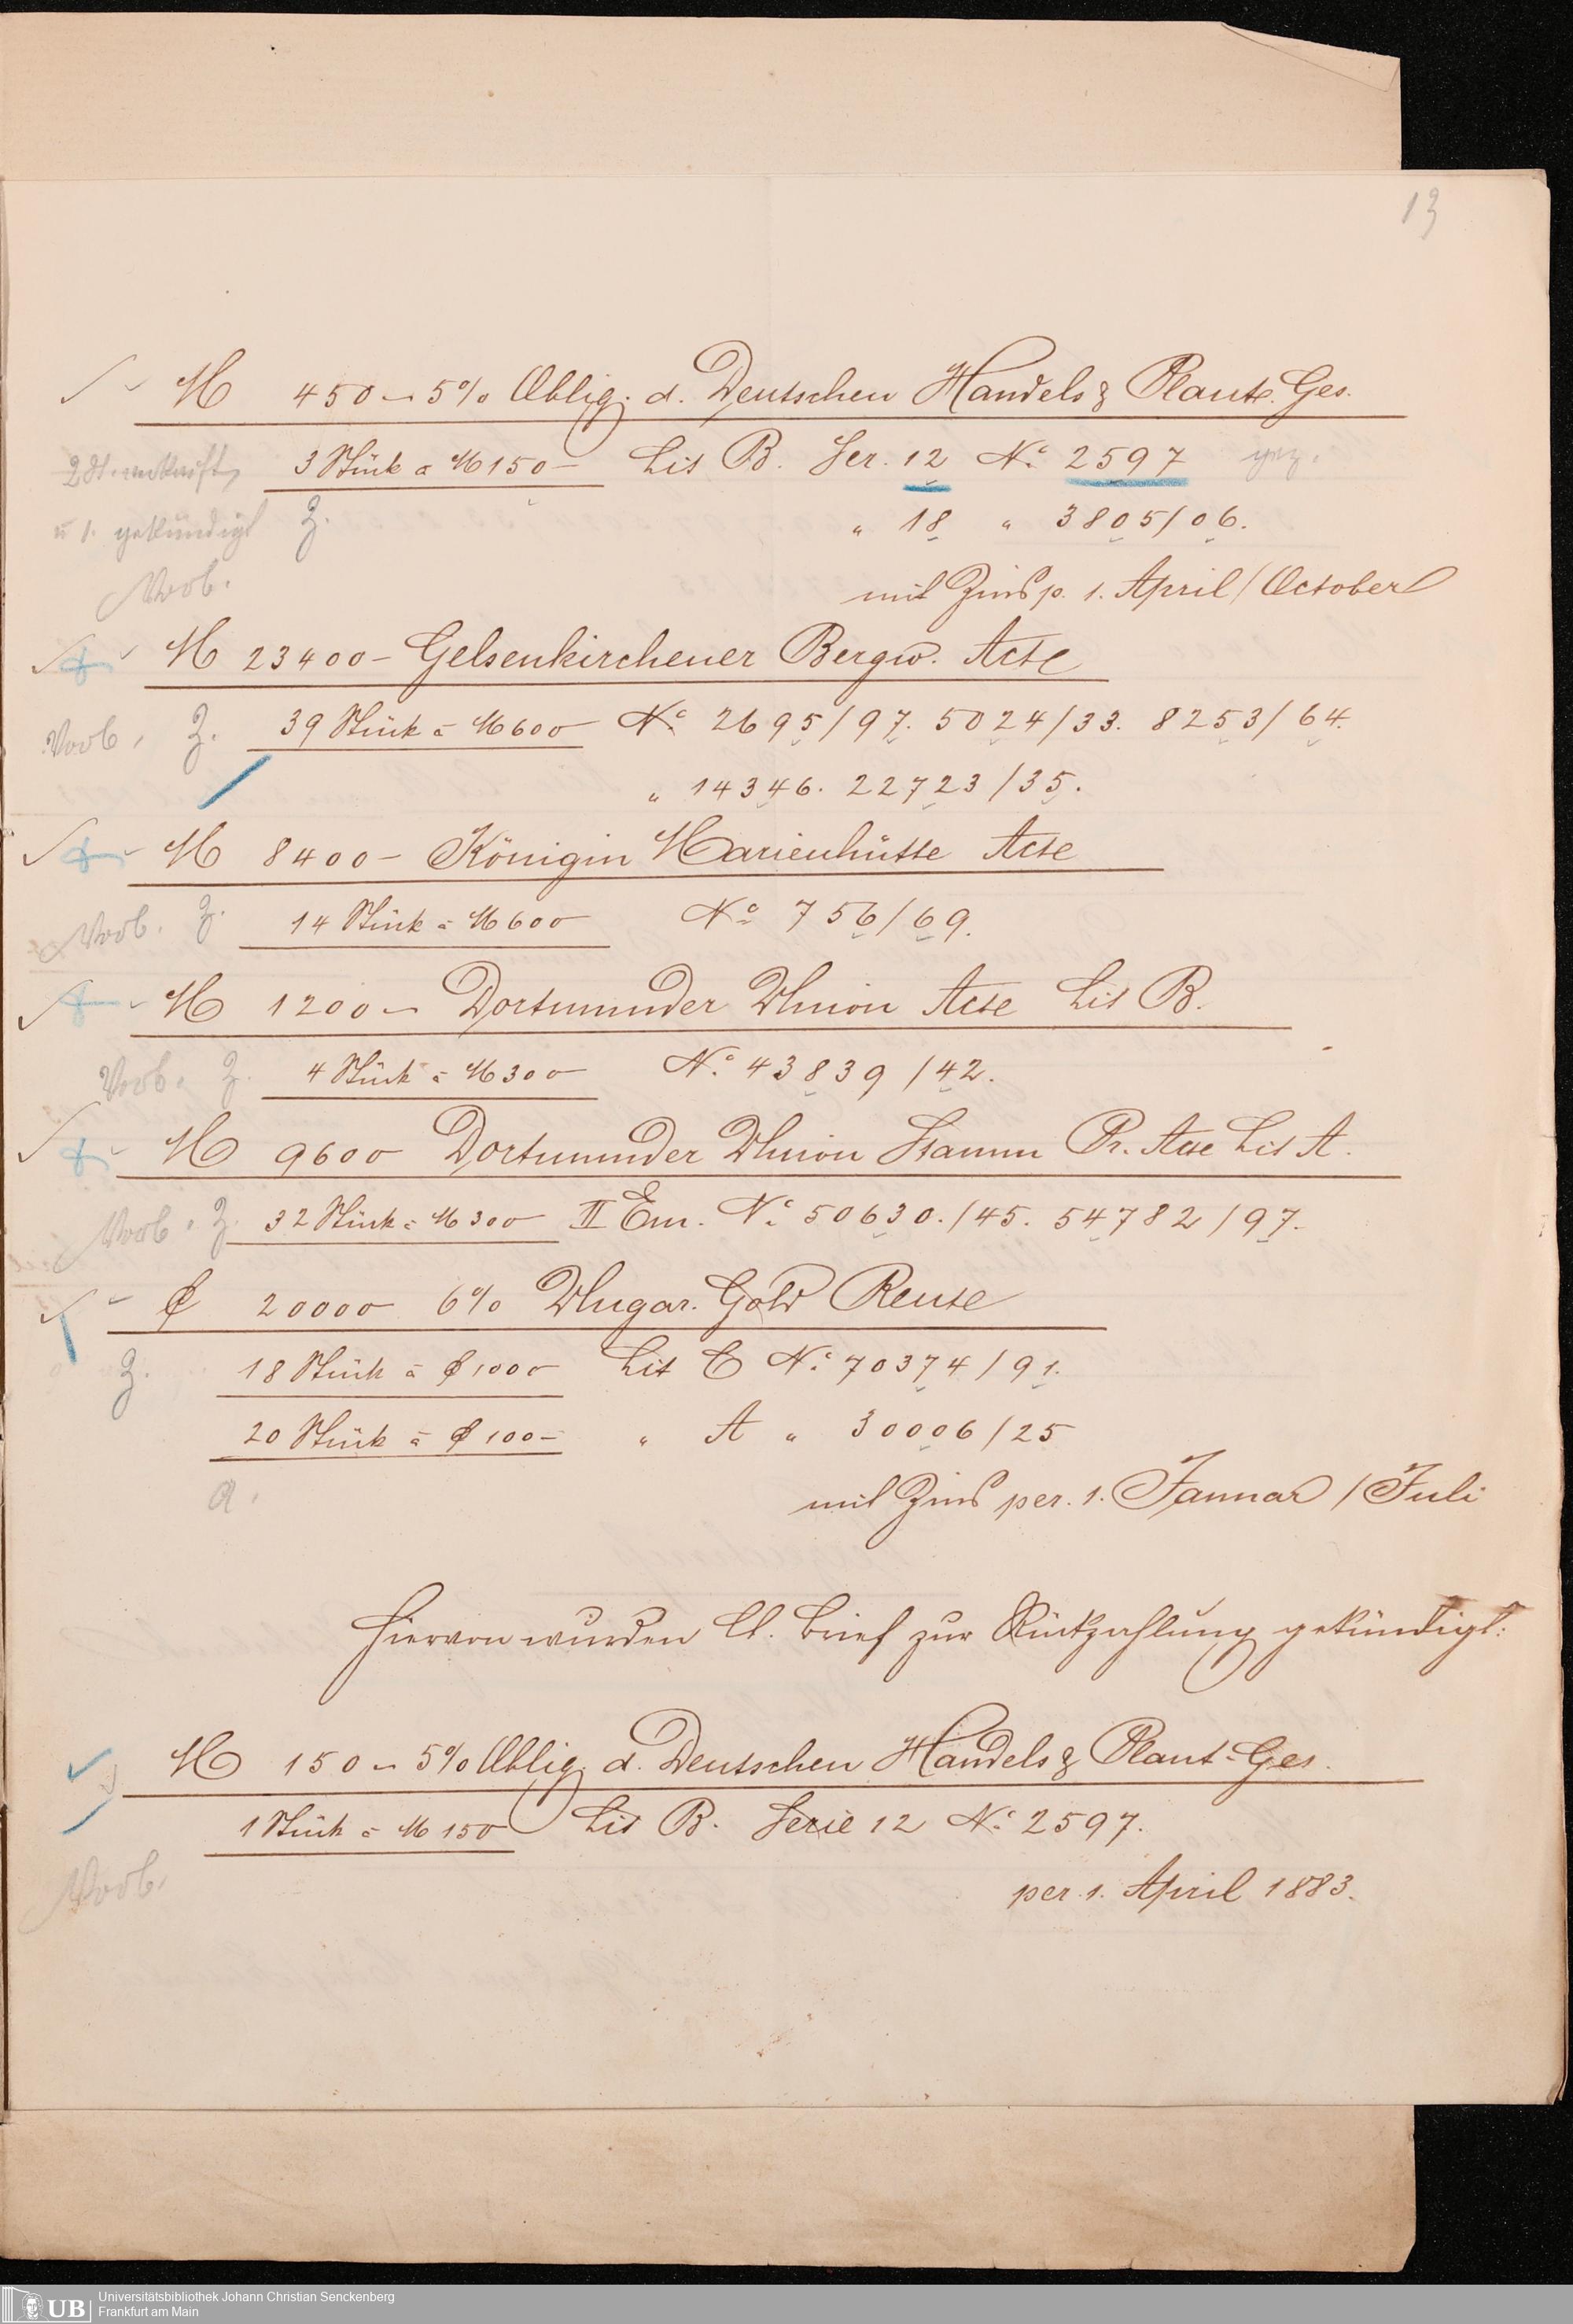 13
M 450 – 5% Oblig. d. Deutschen Handels & Plant. Ges.
2 St. verkauft 3 Stück a M 150 – Lit B. Ser. 12 No. 2597 gez.
u 1. gekündigt Z. " 18 " 3805/06.
Verb. mit Zins p. 1. April/October
M 23400 – Gelsenkirchener Bergw. Acte
Verb. Z. 39 Stück a M 600 – No. 2695/97. 5024/33. 8253/64.
" 14346. 22723/35.
M 8400 – Königin Marienhütte Acte
Verb. Z. 14 Stück a M 600 – No 756/69.
M 1200 – Dortmunder Union Acte Lit B.
Verb. Z. 4 Stück a M 300 – No. 43839/42.
M 9600 Dortmunder Union Stamm Pr. Acte Lit A.
Verb. Z. 32 Stück a M 300 – II Em. No. 50630./45. 54782/97.
20000 – 6% Ungar. Gold Rente
Z. 18 Stück a 1000 – Lit C No. 70374/91.
20 Stück a 100 – " A " 30006/25
a. mit Zins per. 1. Januar/Juli
Hiervon wurden lt. Brief zur Rückzahlung gekündigt:
M 150 – 5% Oblig. d. Deutschen Handels & Plant. Ges.
1 Stück a M 150 Lit B. Serie 12 No. 2597.
Verb. per. 1. April 1883.
UB Universitätsbibliothek Johann Christian Senckenberg
Frankfurt am Main